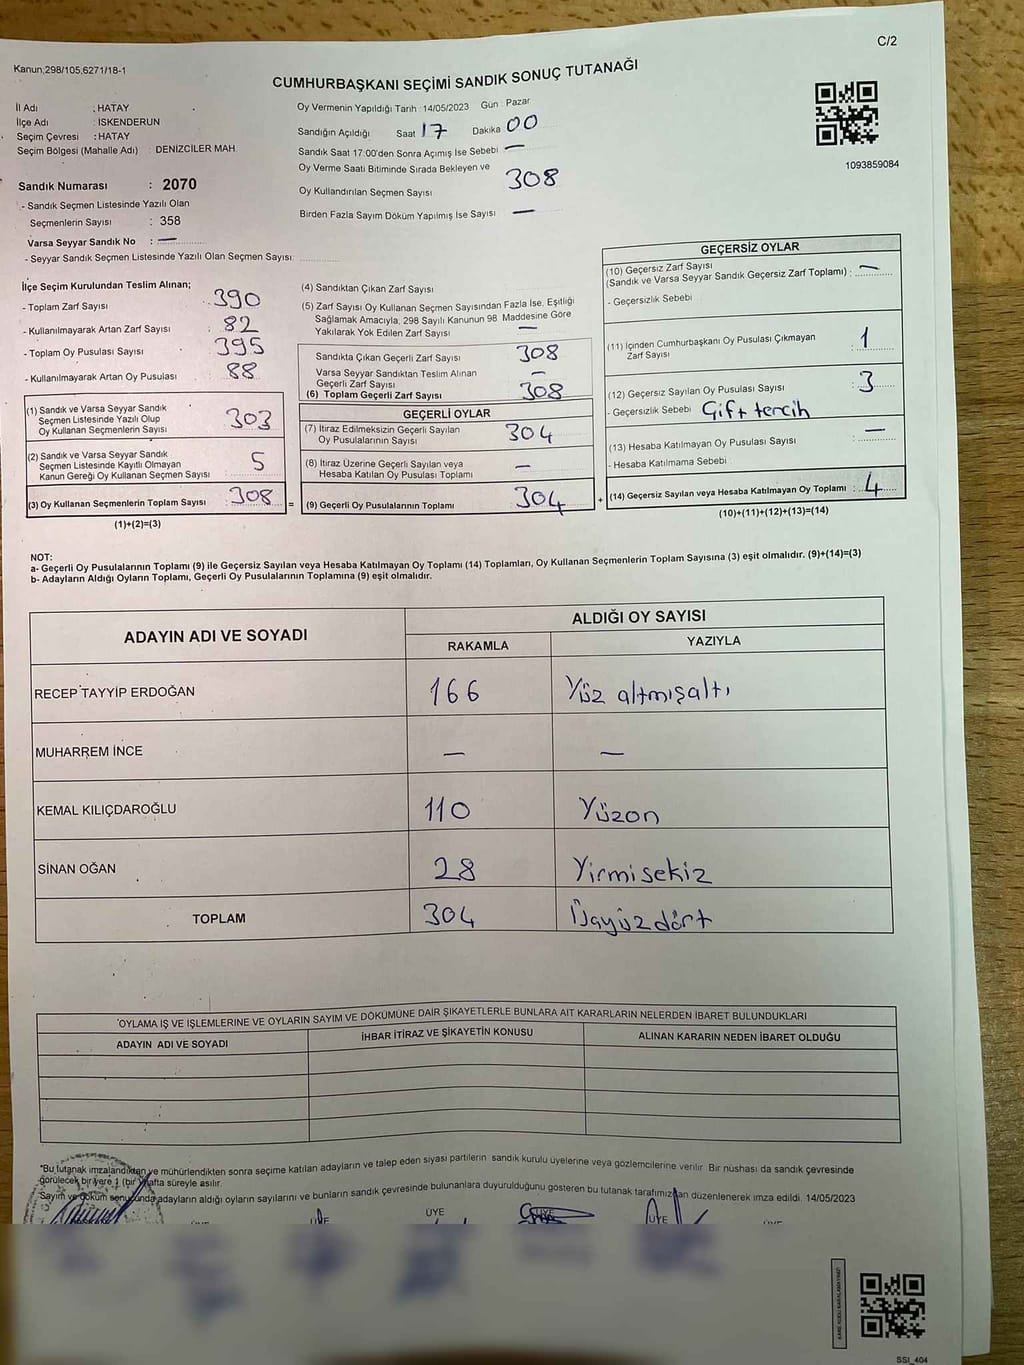 C/2
Kanun,298/105,6271/18-1
CUMHURBAŞKANI SEÇİMİ SANDIK SONUÇ TUTANAĞI
İl Adı : HATAY
İlçe Adı : İSKENDERUN
Seçim Çevresi : HATAY
Seçim Bölgesi (Mahalle Adı) : DENİZCİLER MAH.
Sandık Numarası : 2070
- Sandık Seçmen Listesinde Yazılı Olan
Seçmenlerin Sayısı : 358
Varsa Seyyar Sandık No : —
- Seyyar Sandık Seçmen Listesinde Yazılı Olan Seçmen Sayısı:
Oy Vermenin Yapıldığı Tarih : 14/05/2023 Gün : Pazar
Sandığın Açıldığı Saat 17 Dakika 00
Sandık Saat 17:00'den Sonra Açımış İse Sebebi —
Oy Verme Saati Bitiminde Sırada Bekleyen ve
Oy Kullandırılan Seçmen Sayısı 308
Birden Fazla Sayım Döküm Yapılmış İse Sayısı —
1093859084
İlçe Seçim Kurulundan Teslim Alınan;
- Toplam Zarf Sayısı : 390
- Kullanılmayarak Artan Zarf Sayısı : 82
- Toplam Oy Pusulası Sayısı : 395
- Kullanılmayarak Artan Oy Pusulası : 88
(1) Sandık ve Varsa Seyyar Sandık
Seçmen Listesinde Yazılı Olup
Oy Kullanan Seçmenlerin Sayısı : 303
(2) Sandık ve Varsa Seyyar Sandık
Seçmen Listesinde Kayıtlı Olmayan
Kanun Gereği Oy Kullanan Seçmen Sayısı : 5
(3) Oy Kullanan Seçmenlerin Toplam Sayısı : 308 =
(1)+(2)=(3)
(4) Sandıktan Çıkan Zarf Sayısı
(5) Zarf Sayısı Oy Kullanan Seçmen Sayısından Fazla İse, Eşitliği
Sağlamak Amacıyla, 298 Sayılı Kanunun 98. Maddesine Göre
Yakılarak Yok Edilen Zarf Sayısı —
Sandıkta Çıkan Geçerli Zarf Sayısı 308
Varsa Seyyar Sandıktan Teslim Alınan
Geçerli Zarf Sayısı —
(6) Toplam Geçerli Zarf Sayısı 308
GEÇERLİ OYLAR
(7) İtiraz Edilmeksizin Geçerli Sayılan
Oy Pusulalarının Sayısı 304
(8) İtiraz Üzerine Geçerli Sayılan veya
Hesaba Katılan Oy Pusulası Toplamı —
(9) Geçerli Oy Pusulalarının Toplamı 304 +
GEÇERSİZ OYLAR
(10) Geçersiz Zarf Sayısı
(Sandık ve Varsa Seyyar Sandık Geçersiz Zarf Toplamı) : —
- Geçersizlik Sebebi
(11) İçinden Cumhurbaşkanı Oy Pusulası Çıkmayan
Zarf Sayısı 1
(12) Geçersiz Sayılan Oy Pusulası Sayısı : 3
- Geçersizlik Sebebi Çift tercih
(13) Hesaba Katılmayan Oy Pusulası Sayısı : —
- Hesaba Katılmama Sebebi
(14) Geçersiz Sayılan veya Hesaba Katılmayan Oy Toplamı : 4
(10)+(11)+(12)+(13)=(14)
NOT:
a- Geçerli Oy Pusulalarının Toplamı (9) ile Geçersiz Sayılan veya Hesaba Katılmayan Oy Toplamı (14) Toplamları, Oy Kullanan Seçmenlerin Toplam Sayısına (3) eşit olmalıdır. (9)+(14)=(3)
b- Adayların Aldığı Oyların Toplamı, Geçerli Oy Pusulalarının Toplamına (9) eşit olmalıdır.
ADAYIN ADI VE SOYADI
ALDIĞI OY SAYISI
RAKAMLA YAZIYLA
RECEP TAYYİP ERDOĞAN 166 Yüz altmışaltı
MUHARREM İNCE — —
KEMAL KILIÇDAROĞLU 110 Yüzon
SİNAN OĞAN 28 Yirmisekiz
TOPLAM 304 Üçyüzdört
OYLAMA İŞ VE İŞLEMLERİNE VE OYLARIN SAYIM VE DÖKÜMÜNE DAİR ŞİKAYETLERLE BUNLARA AİT KARARLARIN NELERDEN İBARET BULUNDUKLARI
ADAYIN ADI VE SOYADI İHBAR İTİRAZ VE ŞİKAYETİN KONUSU ALINAN KARARIN NEDEN İBARET OLDUĞU
*Bu tutanak imzalandıktan ve mühürlendikten sonra seçime katılan adayların ve talep eden siyasi partilerin sandık kurulu üyelerine veya gözlemcilerine verilir. Bir nüshası da sandık çevresinde
görülecek bir yere 1 (bir) hafta süreyle asılır.
Sayım ve döküm sonucunda adayların aldığı oyların sayılarını ve bunların sandık çevresinde bulunanlara duyurulduğunu gösteren bu tutanak tarafımızdan düzenlenerek imza edildi. 14/05/2023
ÜYE ÜYE ÜYE ÜYE ÜYE
SSI_404